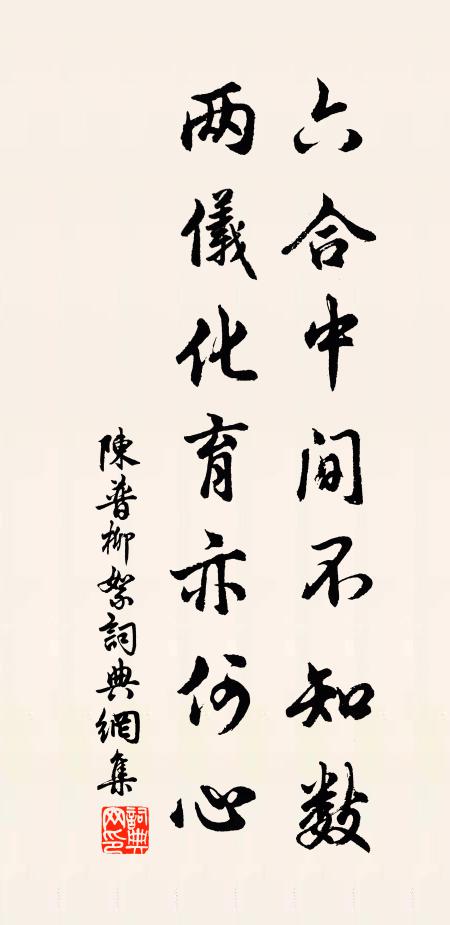 六合中间不知数
两儀化育亦何心
陳普柳絮詞典網集
詞典网印